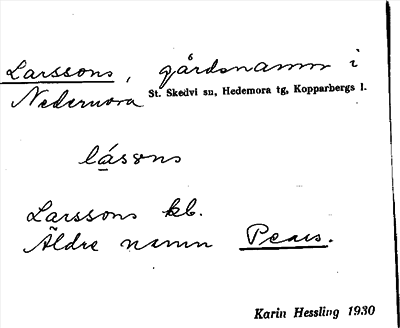 Larssons, gårdsnamn i
Nedernora St. Skedvi sn, Hedemora tg, Kopparbergs l.
lássons
Larssons kb.
Äldre namn Pears.
Karin Hessling 1930